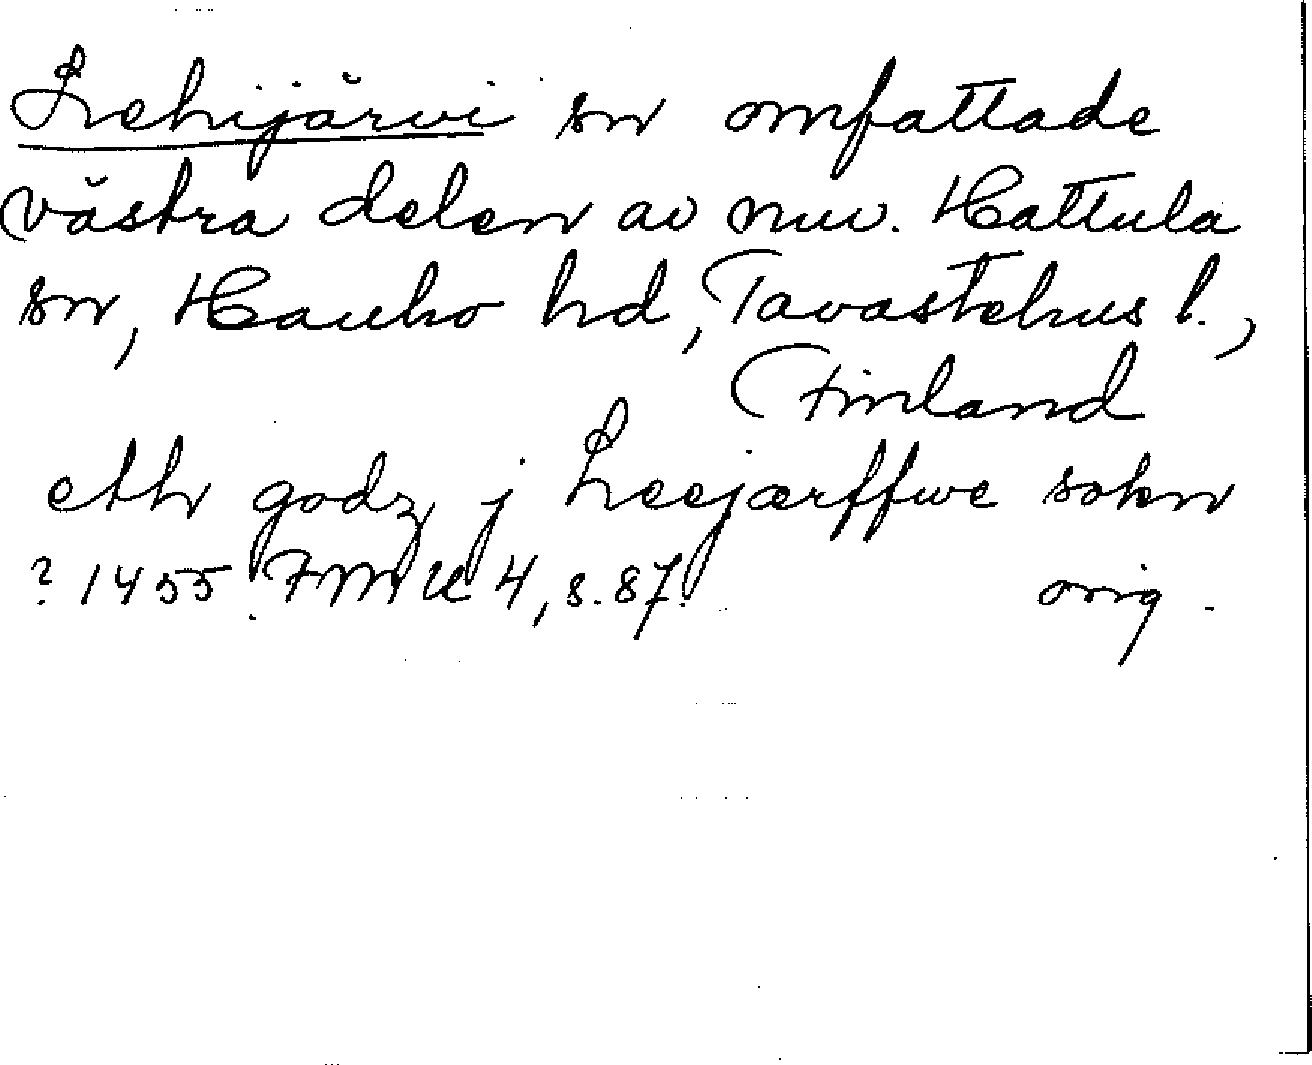 Lehijärvi sn omfattade
västra delen av nuv. Hattula
sn, Hauho hd, Tavastehus l.,
Finland
eth godz j Leejærffwe sokn
? 1455 FMU 4, s. 87. orig.